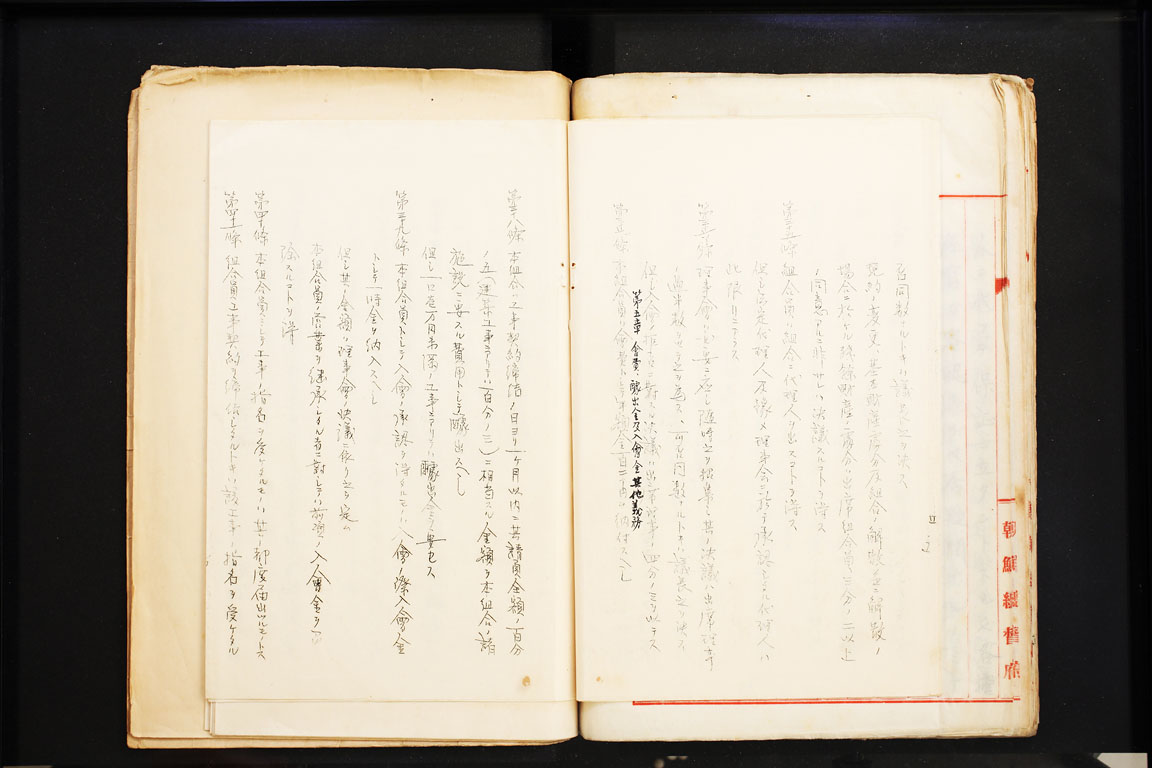 可否同数ナルトキハ議長之ヲ決ス
規約ノ変更、基本財産処分及組合ノ解散並解散ノ
場合ニ於ケル残餘財産ノ處分ハ出席組合員三分ノ二以上
ノ同意アルニ非サレハ決議スルコトヲ得ス
第三十五條 組合員ハ組合ニ代理人ヲ出スコトヲ得ス
但シ 代理人 メ理事会ニ於テ承認シタル代理人ハ
此限リニアラス
第三十六條 理事會ハ必要ニ應シ随時之ヲ招集シ其ノ決議ハ出席理事
ノ過半数ヲ以テ之ヲ定ム、可否同数ナルトキハ議長之ヲ決ス
但シ入會ノ拒否ニ對シテハ決議ハ出席理事ノ四分ノ三ヲ以テス
第五章 會費、醵出金及入會金其他義務
第三十七條 本組合員ハ會費トシテ 金百二十円ヲ納付スヘシ
第三十八條 本組合ハ工事契約締結ノ日ヨリ一ケ月以内ニ其請負金額ノ百分
ノ五(建築工事ニアリテハ百分ノ三)ニ相当スル金額ヲ本組合ノ諸
施設ニ要スル費用トシテ醵出スヘシ
但シ一口壱万円未満ノ工事ニアリテハ醵出金ヲ要セス
第三十九條 本組合員トシテ入會ノ承認ヲ得タルモノハ入會ノ際入會金
トシテ一時金ヲ納入スヘシ
但シ其ノ金額ハ理事會ノ決議ニ依リ之ヲ定ム
本組合員ノ営業ヲ継承シタル者ニ對シテハ前項ノ入會金ヲ免
除スルコトヲ得
第四十條 本組合員ニシテ工事ノ指名ヲ受ケタルモノハ其ノ都度届出ツルモノトス
第四十一條 組合員工事契約ヲ締結シタルトキハ該工事ノ指名ヲ受ケタル
朝鮮總督府